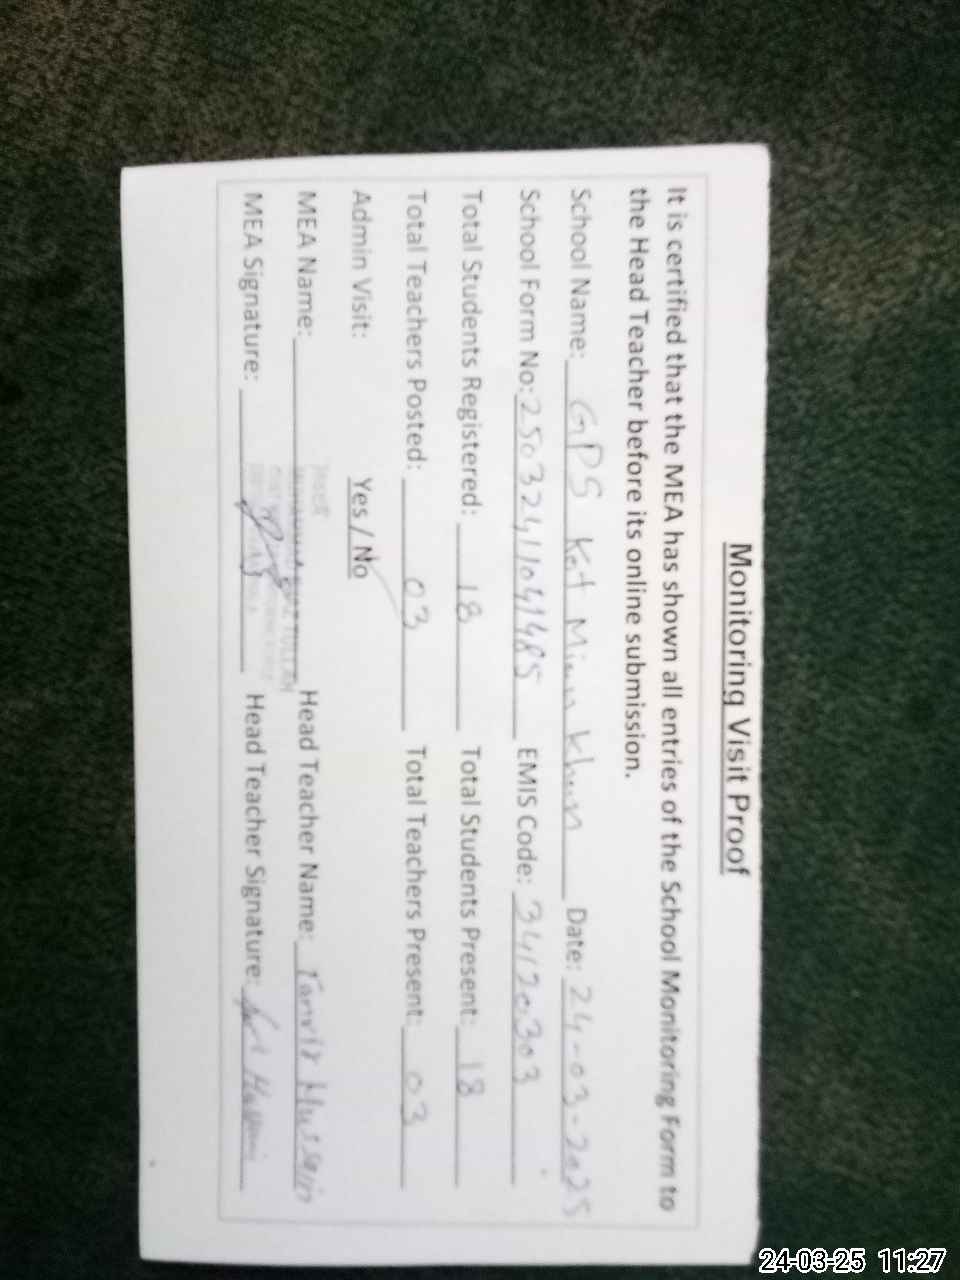 Monitoring Visit Proof
It is certified that the MEA has shown all entries of the School Monitoring Form to
the Head Teacher before its online submission.
School Name: GPS Kot Mian Khan Date: 24-03-2025
School Form No: 25032411041485 EMIS Code: 34120303
Total Students Registered: 18 Total Students Present: 18
Total Teachers Posted: 03 Total Teachers Present: 03
Admin Visit: Yes / No
MEA Name: Head Teacher Name: Tanvir Hussain
MEA Signature: Head Teacher Signature:
24-03-25 11:27